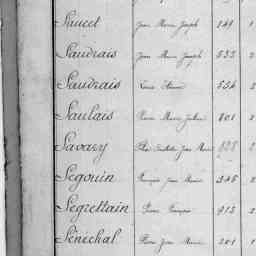 Saucet Jean Marie Joseph 549
Saudrais Jean Marie Joseph 533
Saudrais 554 2
Saulais Pierre Marie Julien 801
Savary Jean Marie 828 2
Segouin François Jean Marie 346 2
Segrettain Pierre François 913 2
Sénéchal Pierre Jean Marie 201 1